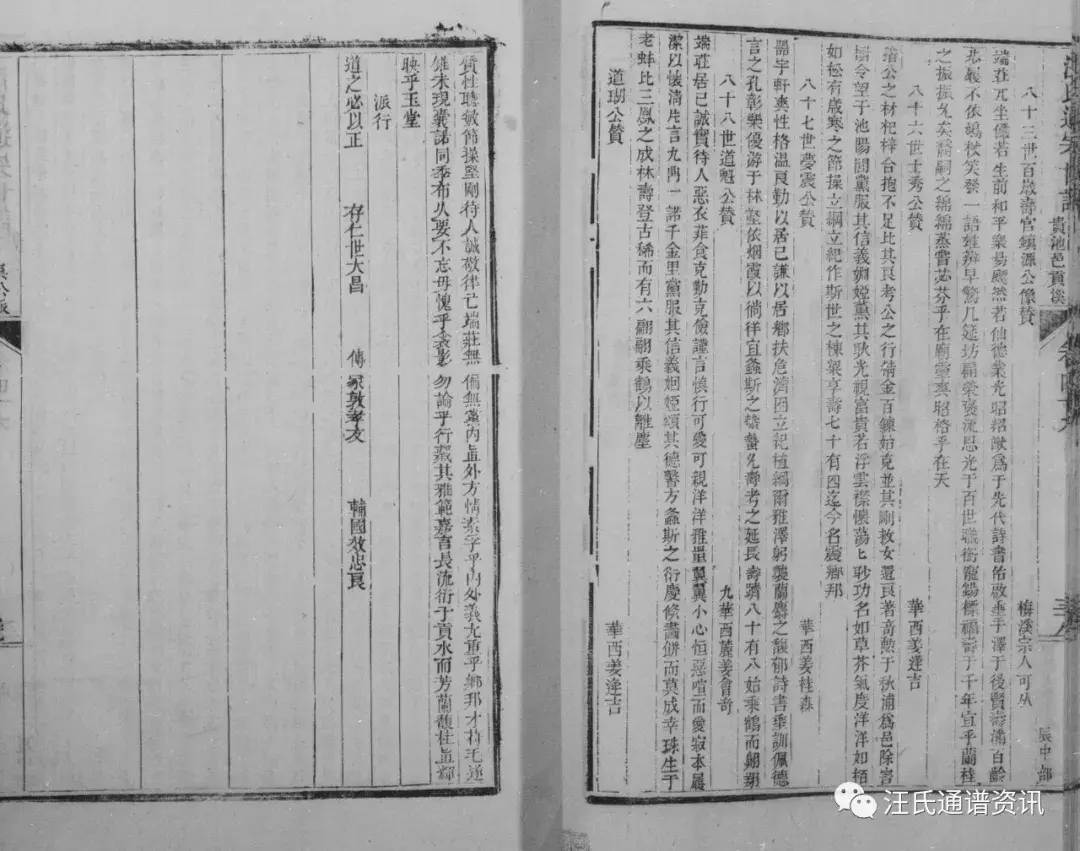 貴池邑貢溪
八十三世百歲壽官鎮源公像贊
梅溪宗人可久
端莊兀坐儼若生前和平樂易飄然若仙德業光昭
先代詩書佑啟垂手澤于後賢壽滿百齡
不依鳩杖笑發一語
流恩光于百世職銜寵錫標福壽于千年宜乎蘭桂
之振振允矣裔嗣之綿綿蒸嘗苾芬乎在廟靈爽昭格乎在天
八十六世士秀公贊
華西姜逢吉
公之材杞梓合抱不足比其良考公之行精金百鍊始克並其剛救女還良著奇勲于秋浦爲邑除害
令望于池陽閭黨服其信義婣婭薰其耿光視富貴若浮雲襟懷蕩ヒ眇功名如草芥氣度洋洋如栢
如松有歲寒之節操立綱立紀作斯世之棟梁享壽七十有四迄今名震鄉邦
八十七世夢震公贊
華西姜桂森
器宇軒爽性格溫良勤以居己謙以居鄉扶危濟困立紀植綱爾雅澤躬襲蘭麝之馥郁詩書垂訓佩德
言之孔彰樂優游于林壑依烟霞以徜徉宜螽斯之蟄蟄允壽考之延長壽躋八十有八始乘鶴而翺翔
八十八世道魁公贊
九華西麓姜會奇
端莊居已誠實待人惡衣菲食克勤克儉謹言慎行可愛可親洋洋雅量翼翼小心恒惡喧而愛寂本履
潔以懷清片言九鼎一諾千金里黨服其信義姻婭頌其德馨方螽斯之衍慶倏畵餅而莫成幸珠生于
老蚌比三鳳之成林壽登古稀而有六翩翩乘鶴以離塵
道瑚公贊
華西姜逢吉
質性聰敏節操堅剛待人誠敬律己端莊無偏無黨內直外方情素孚乎內外義尤重乎鄉邦才
錐未現囊諾同季布久要不忘毋愧乎衾影勿論乎行藏其雅範嘉言長流衍于貢水而芳蘭馥桂直輝
映乎玉堂
派行
道之必以正 存仁世大昌 傳家敦孝友 輔國效忠良
汪氏通谱资讯